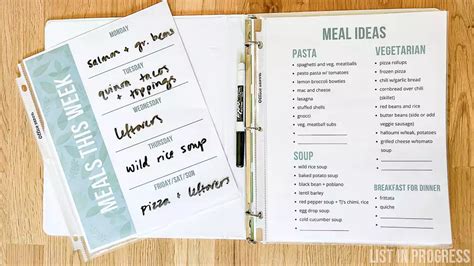 MEALS THIS WEEK
MONDAY
salmon + gr. beans
TUESDAY
quinoa tacos
+ toppings
WEDNESDAY
leftovers
THURSDAY
wild rice soup
FRIDAY/SAT/SUN
pizza + leftovers
MEAL IDEAS
PASTA
spaghetti and veg. meatballs
pasta pasta w/ tomatoes
lemon basil w/ chicken
mac and cheese
lasagna
stuffed shells
gnocchi
veg. meatball subs
SOUP
wild rice soup
baked potato soup
black bean + poblano
lentil barley
red pepper + TJ's chimi. rice
egg drop soup
cold cucumber soup
VEGETARIAN
pizza rollups
frozen pizza
chili w/garlic bread
cornbread over chili
(skillet)
red beans and rice
butter beans (side or add
veggie sausage)
halloumi w/leak, potatoes
grilled cheese w/tomato
soup
BREAKFAST FOR DINNER
frittata
quiche
LIST IN PROGRESS